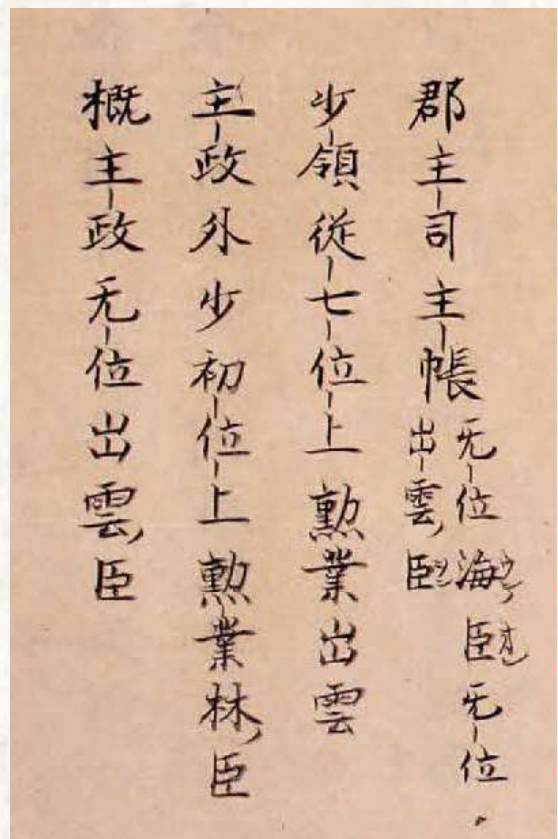 郡主司主帳无位海臣无位
出雲臣
少領従七位上勲業出雲
主政外少初位上勲業林臣
概主政无位出雲臣